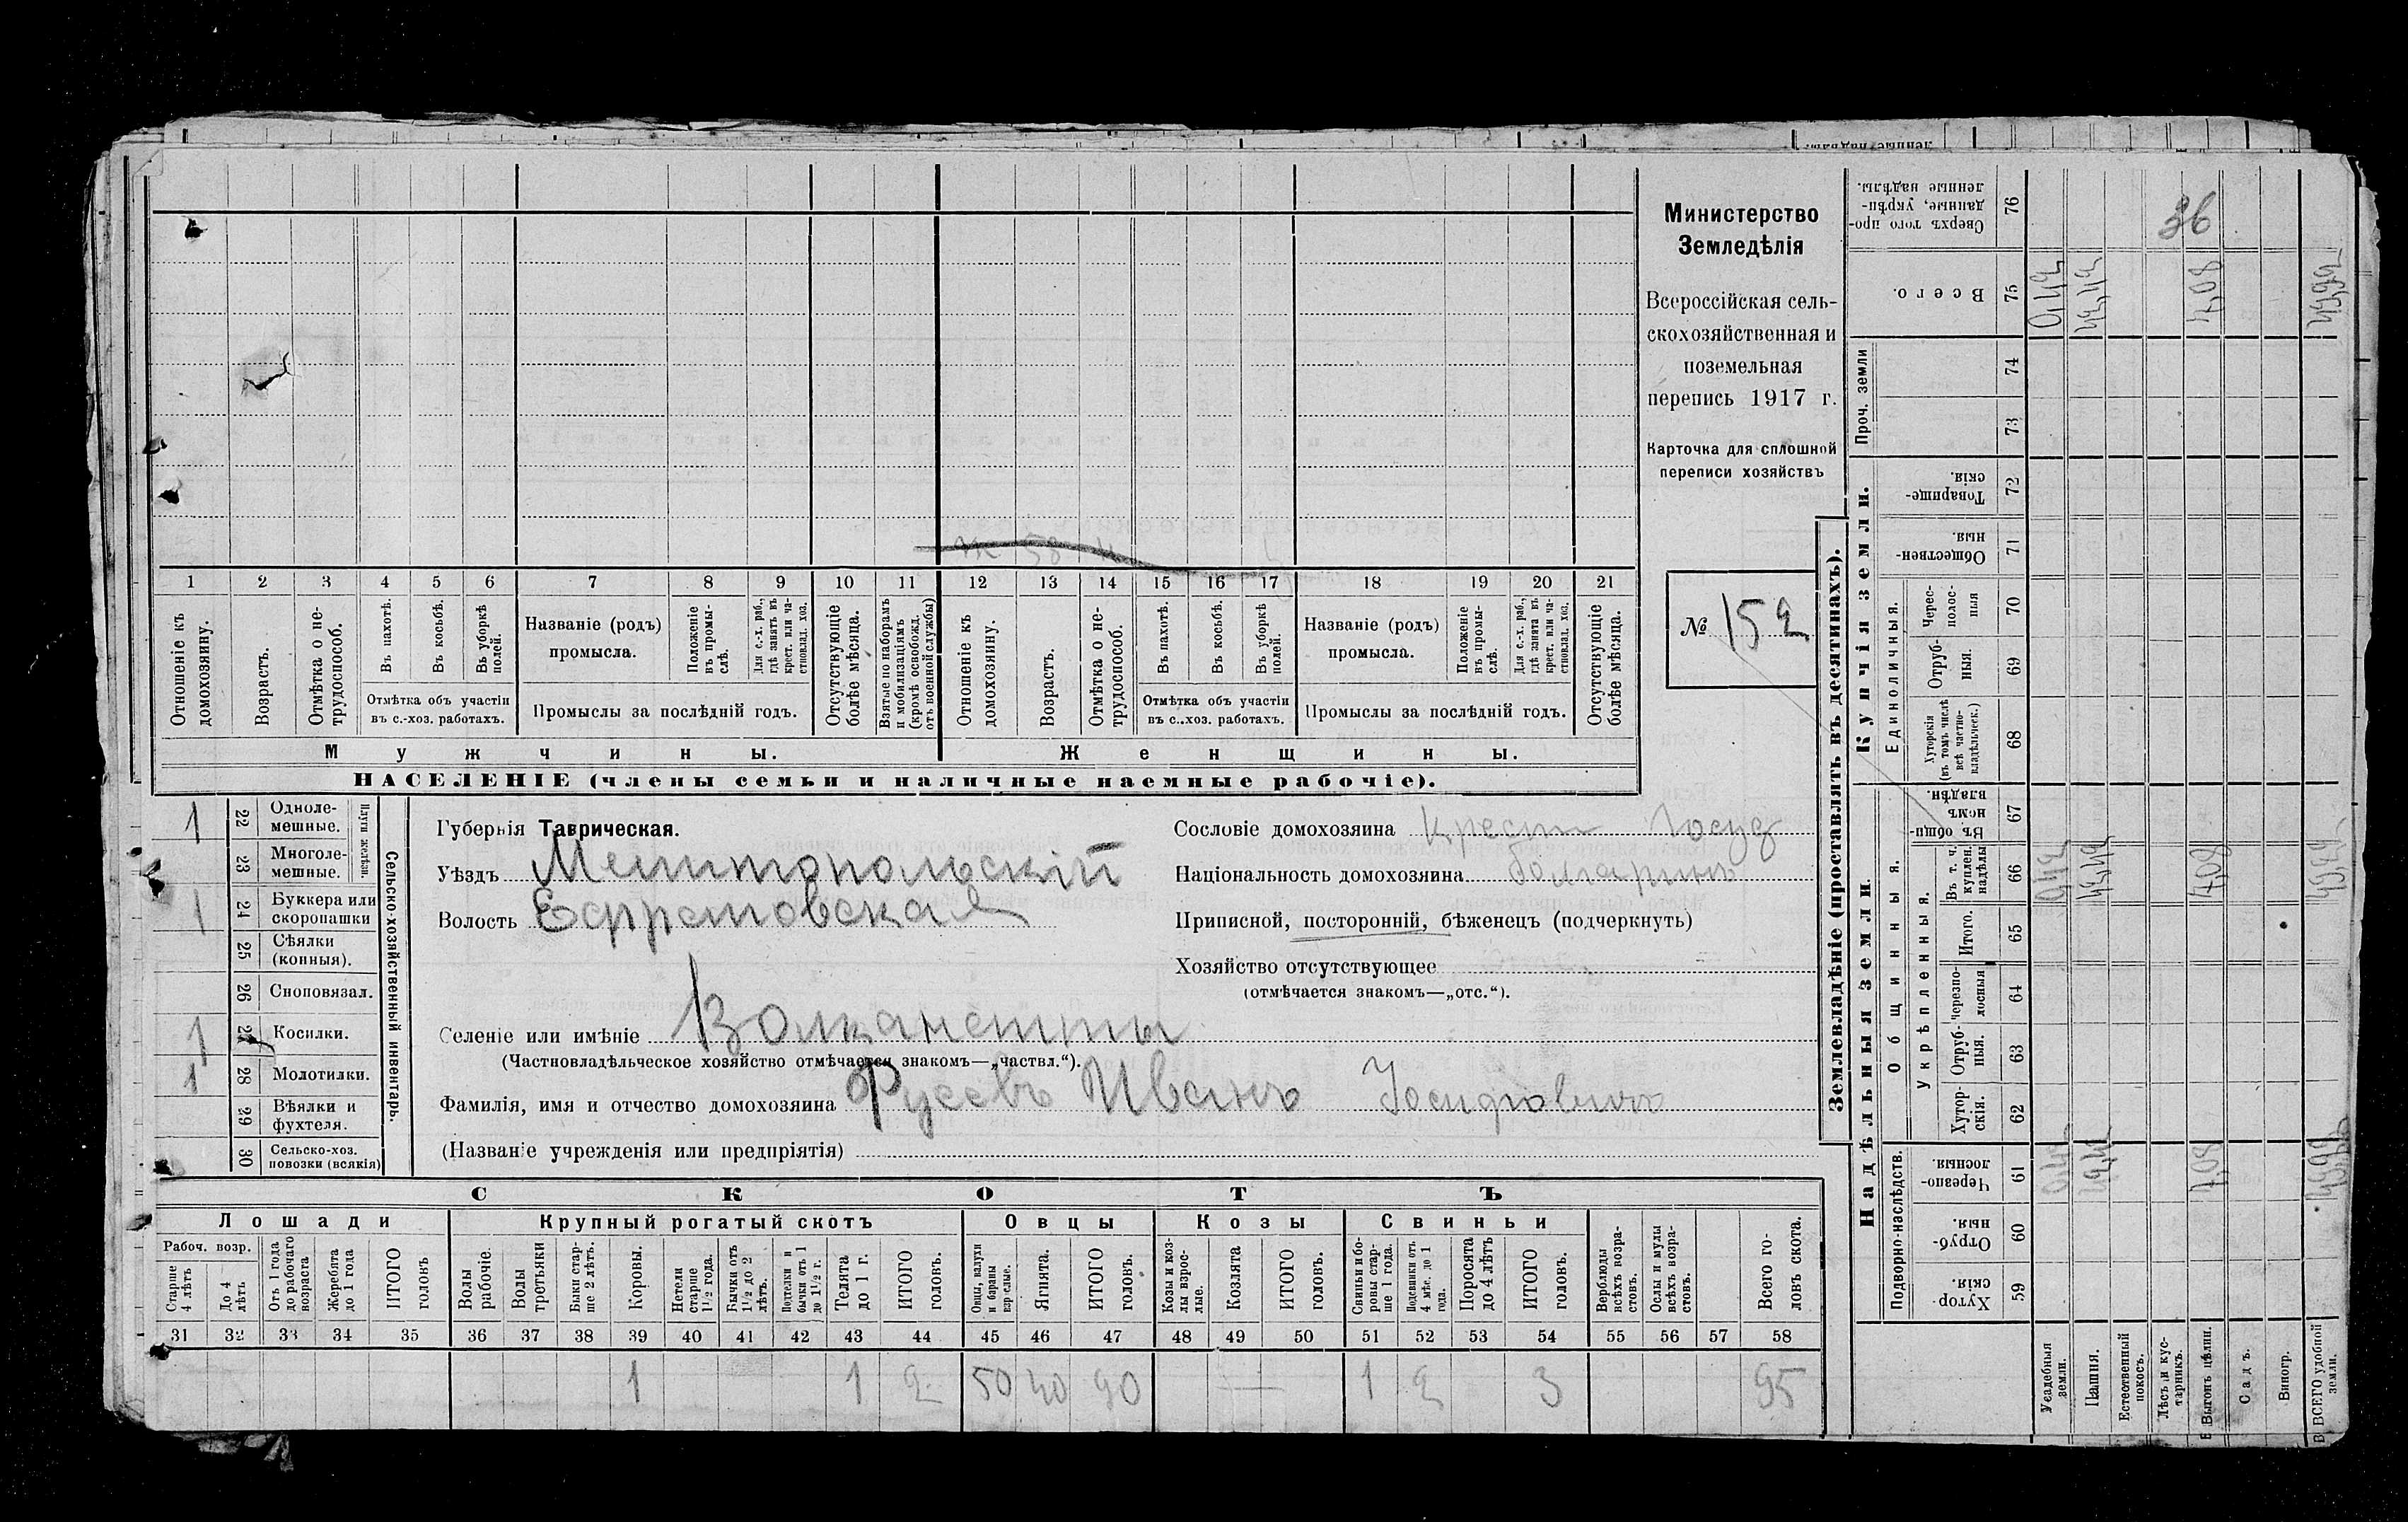 ленные надѣлы.
Министерство
Земледѣлія
Всероссійская сель-
скохозяйственная и
поземельная
перепись 1917 г.
Карточка для сплошной
переписи хозяйствъ
№ 152
1 2 3 4 5 6 7 8 9 10 11 12 13 14 15 16 17 18 19 20 21
Отношеніе къ домохозяину.
Возрастъ.
Отмѣтка о не-трудоспособ.
Въ пахотѣ.
Въ косьбѣ.
Въ уборкѣ полей.
Отмѣтка объ участіи
въ с.-хоз. работахъ.
Названіе (родъ)
промысла.
Положеніе въ промы-слѣ.
Для с.-х. раб., гдѣ занятъ въ крест. или ча-стновлад. хоз.
Промыслы за послѣдній годъ.
Отсутствующіе болѣе мѣсяца.
Взятые по наборамъ и мобилизаціямъ (кромѣ освобожд. отъ военной службы)
Отношеніе къ домохозяину.
Возрастъ.
Отмѣтка о не-трудоспособ.
Въ пахотѣ.
Въ косьбѣ.
Въ уборкѣ полей.
Отмѣтка объ участіи
въ с..-хоз. работахъ.
Названіе (родъ)
промысла.
Положеніе въ промы-слѣ.
Для с.-х. раб., гдѣ занята въ крест. или ча-стновлад. хоз.
Промыслы за послѣдній годъ.
Отсутствующіе болѣе мѣсяца.
Мужчины.
Женщины.
НАСЕЛЕНІЕ (члены семьи и наличные наемные рабочіе).
1 22 Одноле-мешные.
23 Многоле-мешные.
Плуги желѣзн.
1 24 Буккера или скоропашки
25 Сѣялки (конныя).
26 Сноповязал.
1 27 Косилки.
1 28 Молотилки.
29 Вѣялки и фухтеля.
30 Сельско-хоз. повозки (всякія)
Сельско-хозяйственный инвентарь.
Губернія Таврическая.
Уѣздъ Мелитопольскій
Волость Ефремовская
Сословіе домохозяина Крест Госуд
Національность домохозяина Болгаринъ
Приписной, посторонній, бѣженецъ (подчеркнуть)
Хозяйство отсутствующее
(отмѣчается знакомъ—„отс.“).
Селеніе или имѣніе
(Частновладѣльческое хозяйство отмѣчается знакомъ—„частвл.“).
Фамилія, имя и отчество домохозяина Русевъ Иванъ Іосифовичъ
(Названіе учрежденія или предпріятія)
СКОТЪ
Лошади
Крупный рогатый скотъ
Овцы
Козы
Свиньи
Рабоч. возр.
Старше 4 лѣтъ
До 4 лѣтъ
Отъ 1 года до рабочаго возраста
Жеребята до 1 года
ИТОГО головъ
Волы рабочіе.
Волы третьяки
Быки стар-ше 2 лѣтъ.
Коровы.
Нетели старше 1½ года.
Бычки отъ 1½ до 2 лѣтъ.
Подтелки и бычки отъ 1 до 1½ г.
Телята до 1 г.
ИТОГО головъ.
Овцы, валухи и бараны взрослые.
Ягнята.
ИТОГО головъ.
Козы и коз-лы взрос-лые.
Козлята
ИТОГО головъ.
Свиньи и бо-ровы стар-ше 1 года.
Подсвинки отъ 4 мѣс. до 1 года.
Поросята до 4 лѣтъ
ИТОГО головъ.
Верблюды всѣхъ возра-стовъ.
Ослы и мулы всѣхъ возра-стовъ.
Всего го-ловъ скота.
31 32 33 34 35 36 37 38 39 40 41 42 43 44 45 46 47 48 49 50 51 52 53 54 55 56 57 58
1 1 2 50 40 90 — 1 2 3 95
Землевладѣніе (проставлять въ десятинахъ).
Надѣльныя земли.
Купчія земли.
Проч. земли
Подворно-наслѣдств.
Общинныя.
Укрѣпленныя.
Единоличныя.
Сверхъ того про-данные, укрѣп-ленные надѣлы. 76
Всего. 75
74
73
Товарище-скія. 72
Обществен-ныя. 71
Черес-полос-ныя 70
Отруб-ныя. 69
Хуторскія (въ томъ числѣ всѣ частно-владѣльческ.) 68
Въ общи-номъ владѣн. 67
Въ т. ч. куплен. надѣлы 66
Итого. 65
Черезпо-лосныя 64
Отруб-ныя. 63
Хутор-скія. 62
Черезпо-лосныя. 61
Отруб-ныя. 60
Хутор-скія. 59
Усадебныя земли.
Пашня.
Естественный покосъ.
Лѣсъ и кус-тарникъ.
Выгонъ цѣлин.
Садъ.
Виногр.
ВСЕГО удобной земли.
36